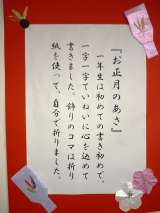 『お正月のあさ』
一年生は初めての書き初めで、
一字一字ていねいに心を込めて
書きました。飾りのコマは折り
紙を使って、自分で折りました。